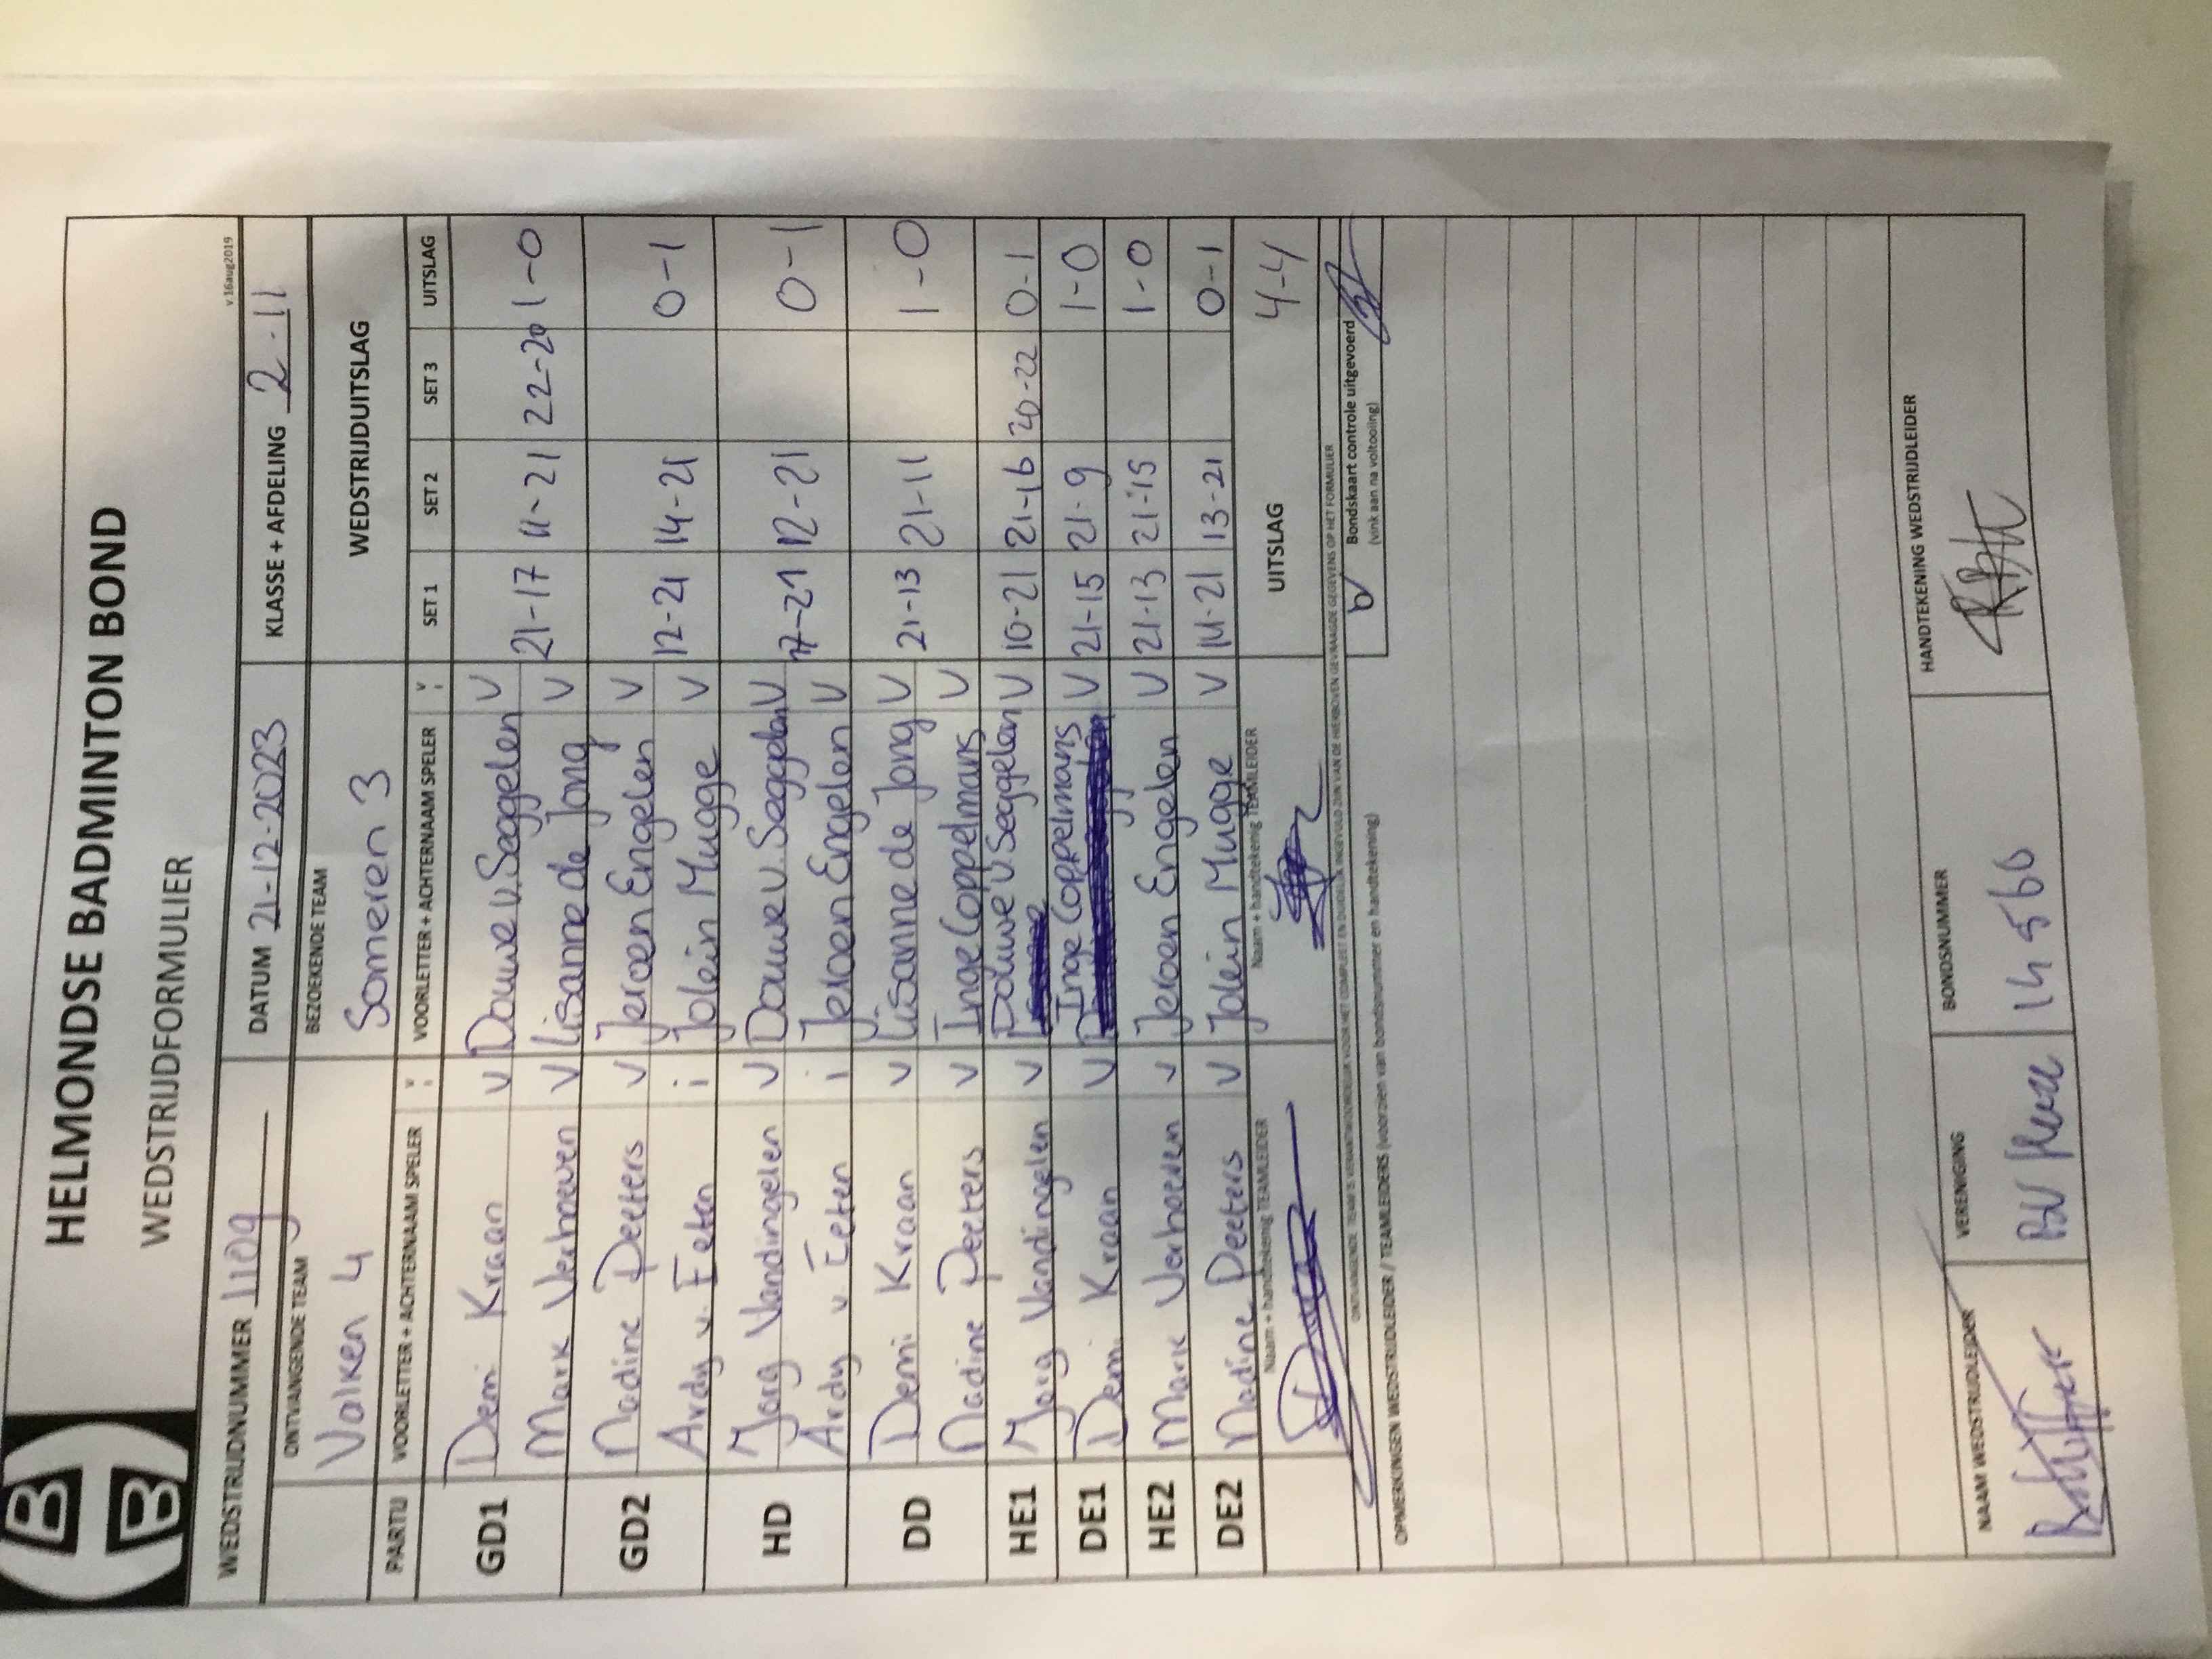 HELMONDSE BADMINTON BOND
WEDSTRIJDFORMULIER
v.16aug2019
WEDSTRIJDNUMMER 1109 DATUM 21-12-2023 KLASSE + AFDELING 2-11
ONTVANGENDE TEAM BEZOEKENDE TEAM WEDSTRIJDUITSLAG
Valken 4 Someren 3
PARTIJ VOORLETTER + ACHTERNAAM SPELER V/I VOORLETTER + ACHTERNAAM SPELER V/I SET 1 SET 2 SET 3 UITSLAG
GD1 Demi Kraan V Douwe v. Seggelen V
Mark Verhoeven V Lisanne de Jong V 21-17 11-21 22-20 1-0
GD2 Nadine Peeters V Jeroen Engelen V
Ardy v. Eeten i Jolein Mugge V 12-21 14-21 0-1
HD Jorg Vandingelen V Douwe v. Seggelen V
Ardy v Eeten i Jeroen Engelen V 17-21 12-21 0-1
DD Demi Kraan V Lisanne de Jong V
Nadine Peeters V Inge Coppelmans V 21-13 21-11 1-0
HE1 Jorg Vandingelen V Douwe v. Seggelen V 10-21 21-16 20-22 0-1
DE1 Demi Kraan V Inge Coppelmans V 21-15 21-9 1-0
HE2 Mark Verhoeven V Jeroen Engelen V 21-13 21-15 1-0
DE2 Nadine Peeters V Jolein Mugge V 14-21 13-21 0-1
Naam + handtekenig TEAMLEIDER Naam + handtekenig TEAMLEIDER UITSLAG 4-4
ONTVANGENDE TEAM IS VERANTWOORDELIJK VOOR HET COMPLEET EN DUIDELIJK INGEVULD ZIJN VAN DE HIERBOVEN GEVRAAGDE GEGEVENS OP HET FORMULIER
Bondskaart controle uitgevoerd
(vink aan na voltooiing)
OPMERKINGEN WEDSTRIJDLEIDER / TEAMLEIDERS (voorzien van bondsnummer en handtekening)
NAAM WEDSTRIJDLEIDER VERENIGING BONDSNUMMER HANDTEKENING WEDSTRIJDLEIDER
BV 14560